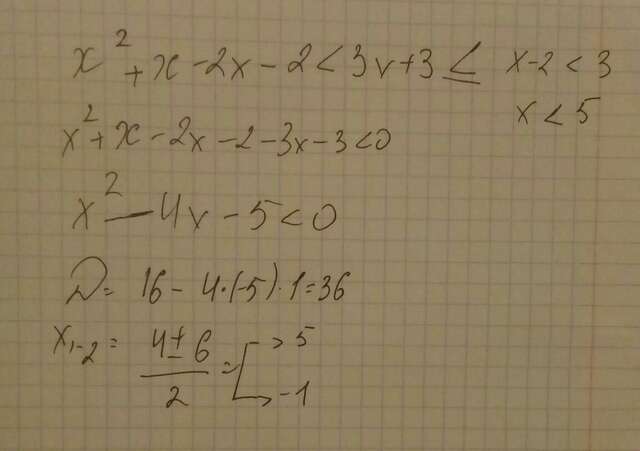 x² + x - 2x - 2 < 3x + 3 ≤ x - 2 < 3
x < 5
x² + x - 2x - 2 - 3x - 3 < 0
x² - 4x - 5 < 0
D = 16 - 4·(-5)·1 = 36
x₁₋₂ = (4 ± 6)/2 = [→ 5
→ -1